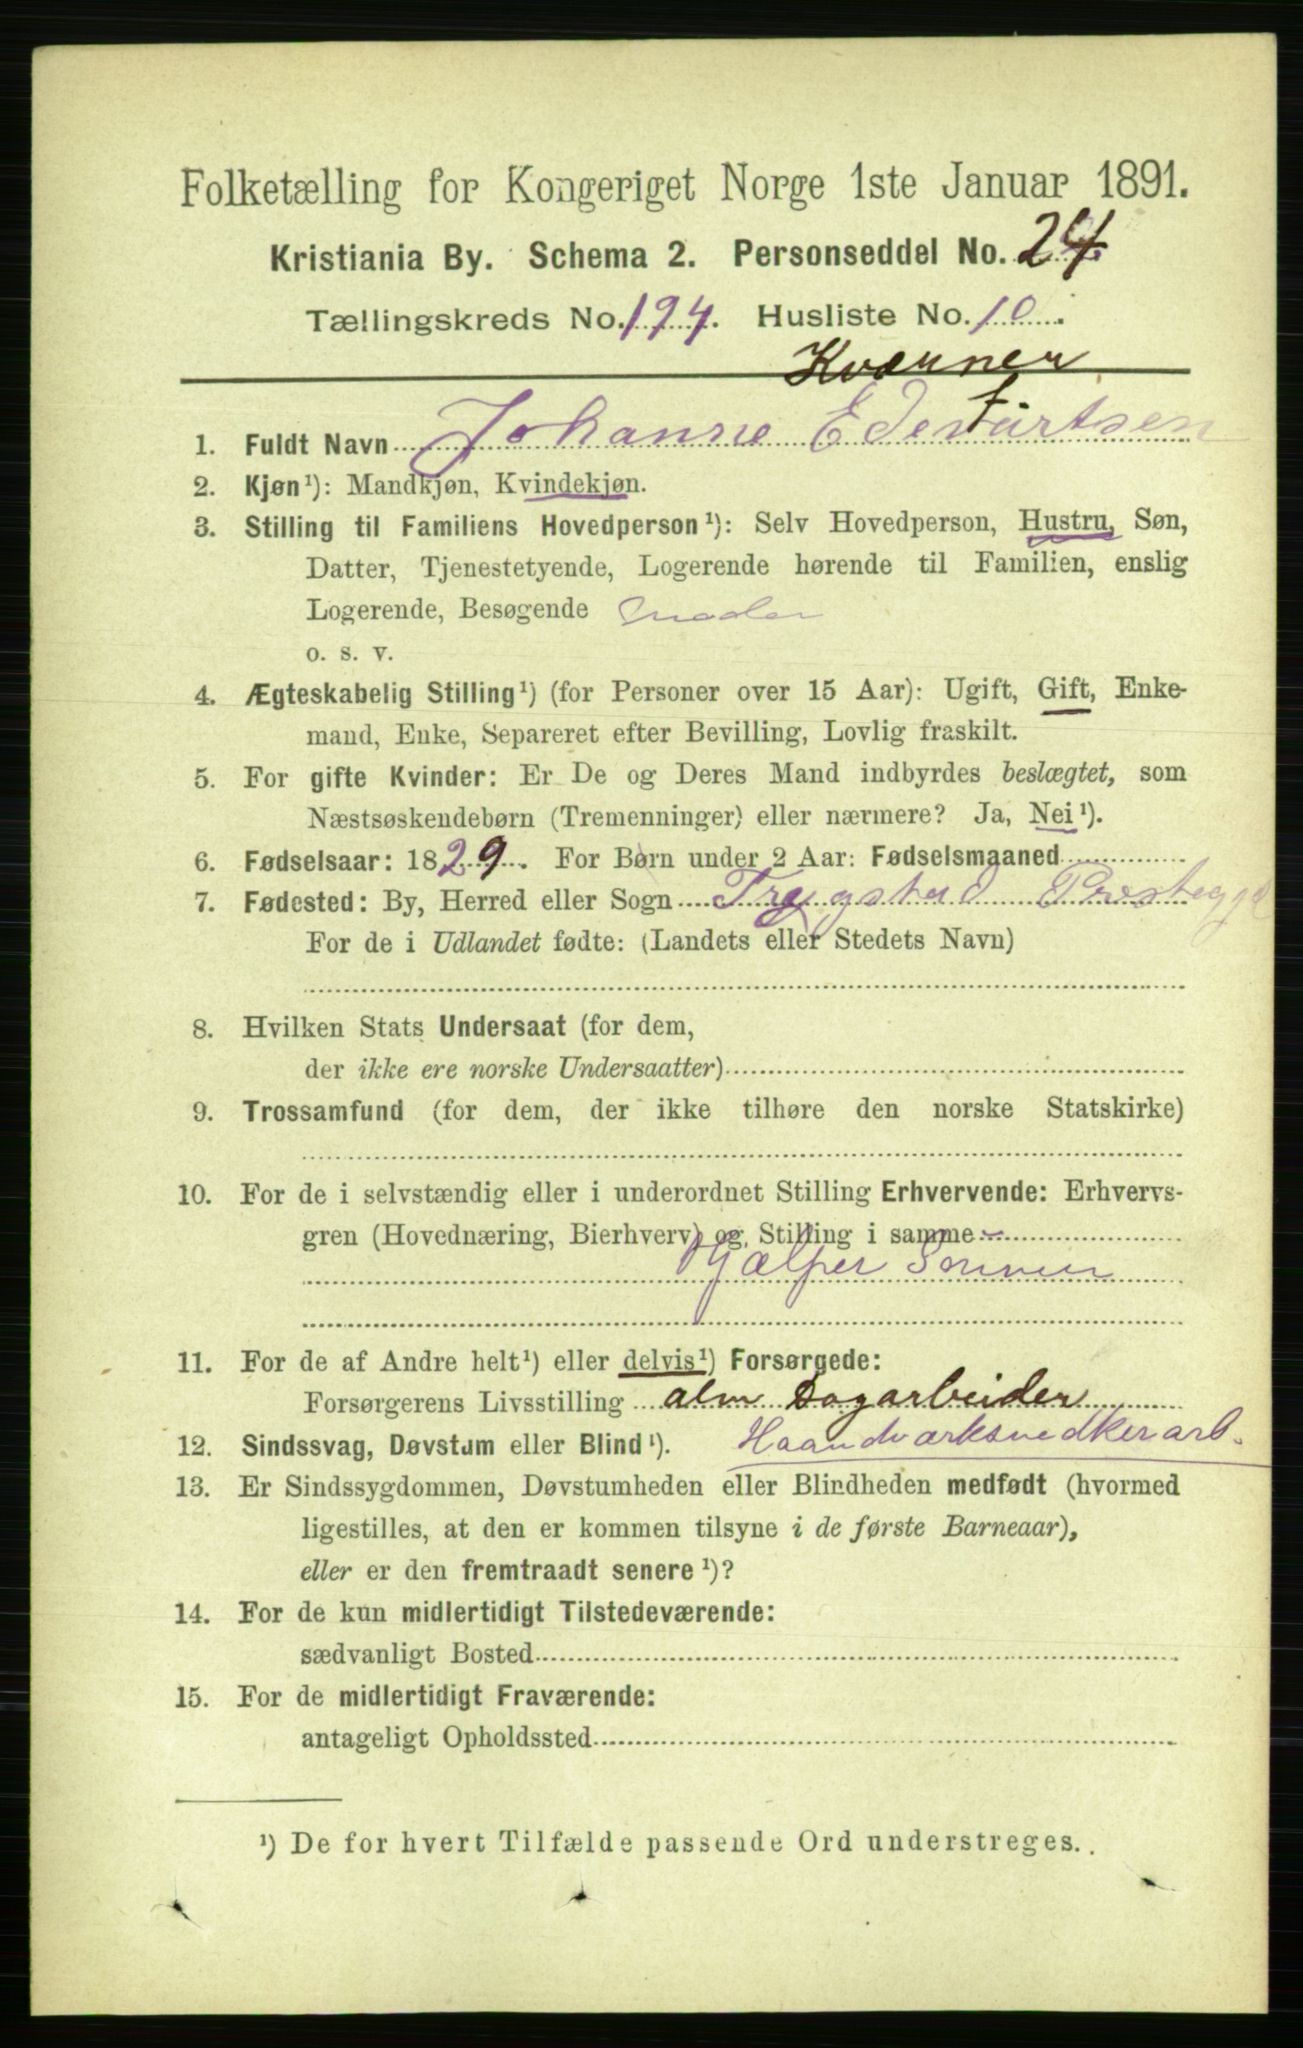 Folketælling for Kongeriget Norge 1ste Januar 1891.
Kristiania By. Schema 2. Personseddel No. 24
Tællingskreds No. 194. Husliste No. 10.
Kværner
1. Fuldt Navn Johanne Edevartsen
2. Kjøn¹): Mandkjøn, Kvindekjøn.
3. Stilling til Familiens Hovedperson¹): Selv Hovedperson, Hustru, Søn,
Datter, Tjenestetyende, Logerende hørende til Familien, enslig
Logerende, Besøgende Moder
o. s. v.
4. Ægteskabelig Stilling¹) (for Personer over 15 Aar): Ugift, Gift, Enke-
mand, Enke, Separeret efter Bevilling, Lovlig fraskilt.
5. For gifte Kvinder: Er De og Deres Mand indbyrdes beslægtet, som
Næstsøskendebørn (Tremenninger) eller nærmere? Ja, Nei¹).
6. Fødselsaar: 1829. For Børn under 2 Aar: Fødselsmaaned
7. Fødested: By, Herred eller Sogn Trygstad Prestegjæ
For de i Udlandet fødte: (Landets eller Stedets Navn)
8. Hvilken Stats Undersaat (for dem,
der ikke ere norske Undersaatter)
9. Trossamfund (for dem, der ikke tilhøre den norske Statskirke)
10. For de i selvstændig eller i underordnet Stilling Erhvervende: Erhvervs-
gren (Hovednæring, Bierhverv) og Stilling i samme
Hjælper Sønnen
11. For de af Andre helt¹) eller delvis¹) Forsørgede:
Forsørgerens Livsstilling alm Dagarbeider
12. Sindssvag, Døvstum eller Blind¹). Haandværksnedkerarb.
13. Er Sindssygdommen, Døvstumheden eller Blindheden medfødt (hvormed
ligestilles, at den er kommen tilsyne i de første Barneaar),
eller er den fremtraadt senere¹)?
14. For de kun midlertidigt Tilstedeværende:
sædvanligt Bosted
15. For de midlertidigt Fraværende:
antageligt Opholdssted
¹) De for hvert Tilfælde passende Ord understreges.